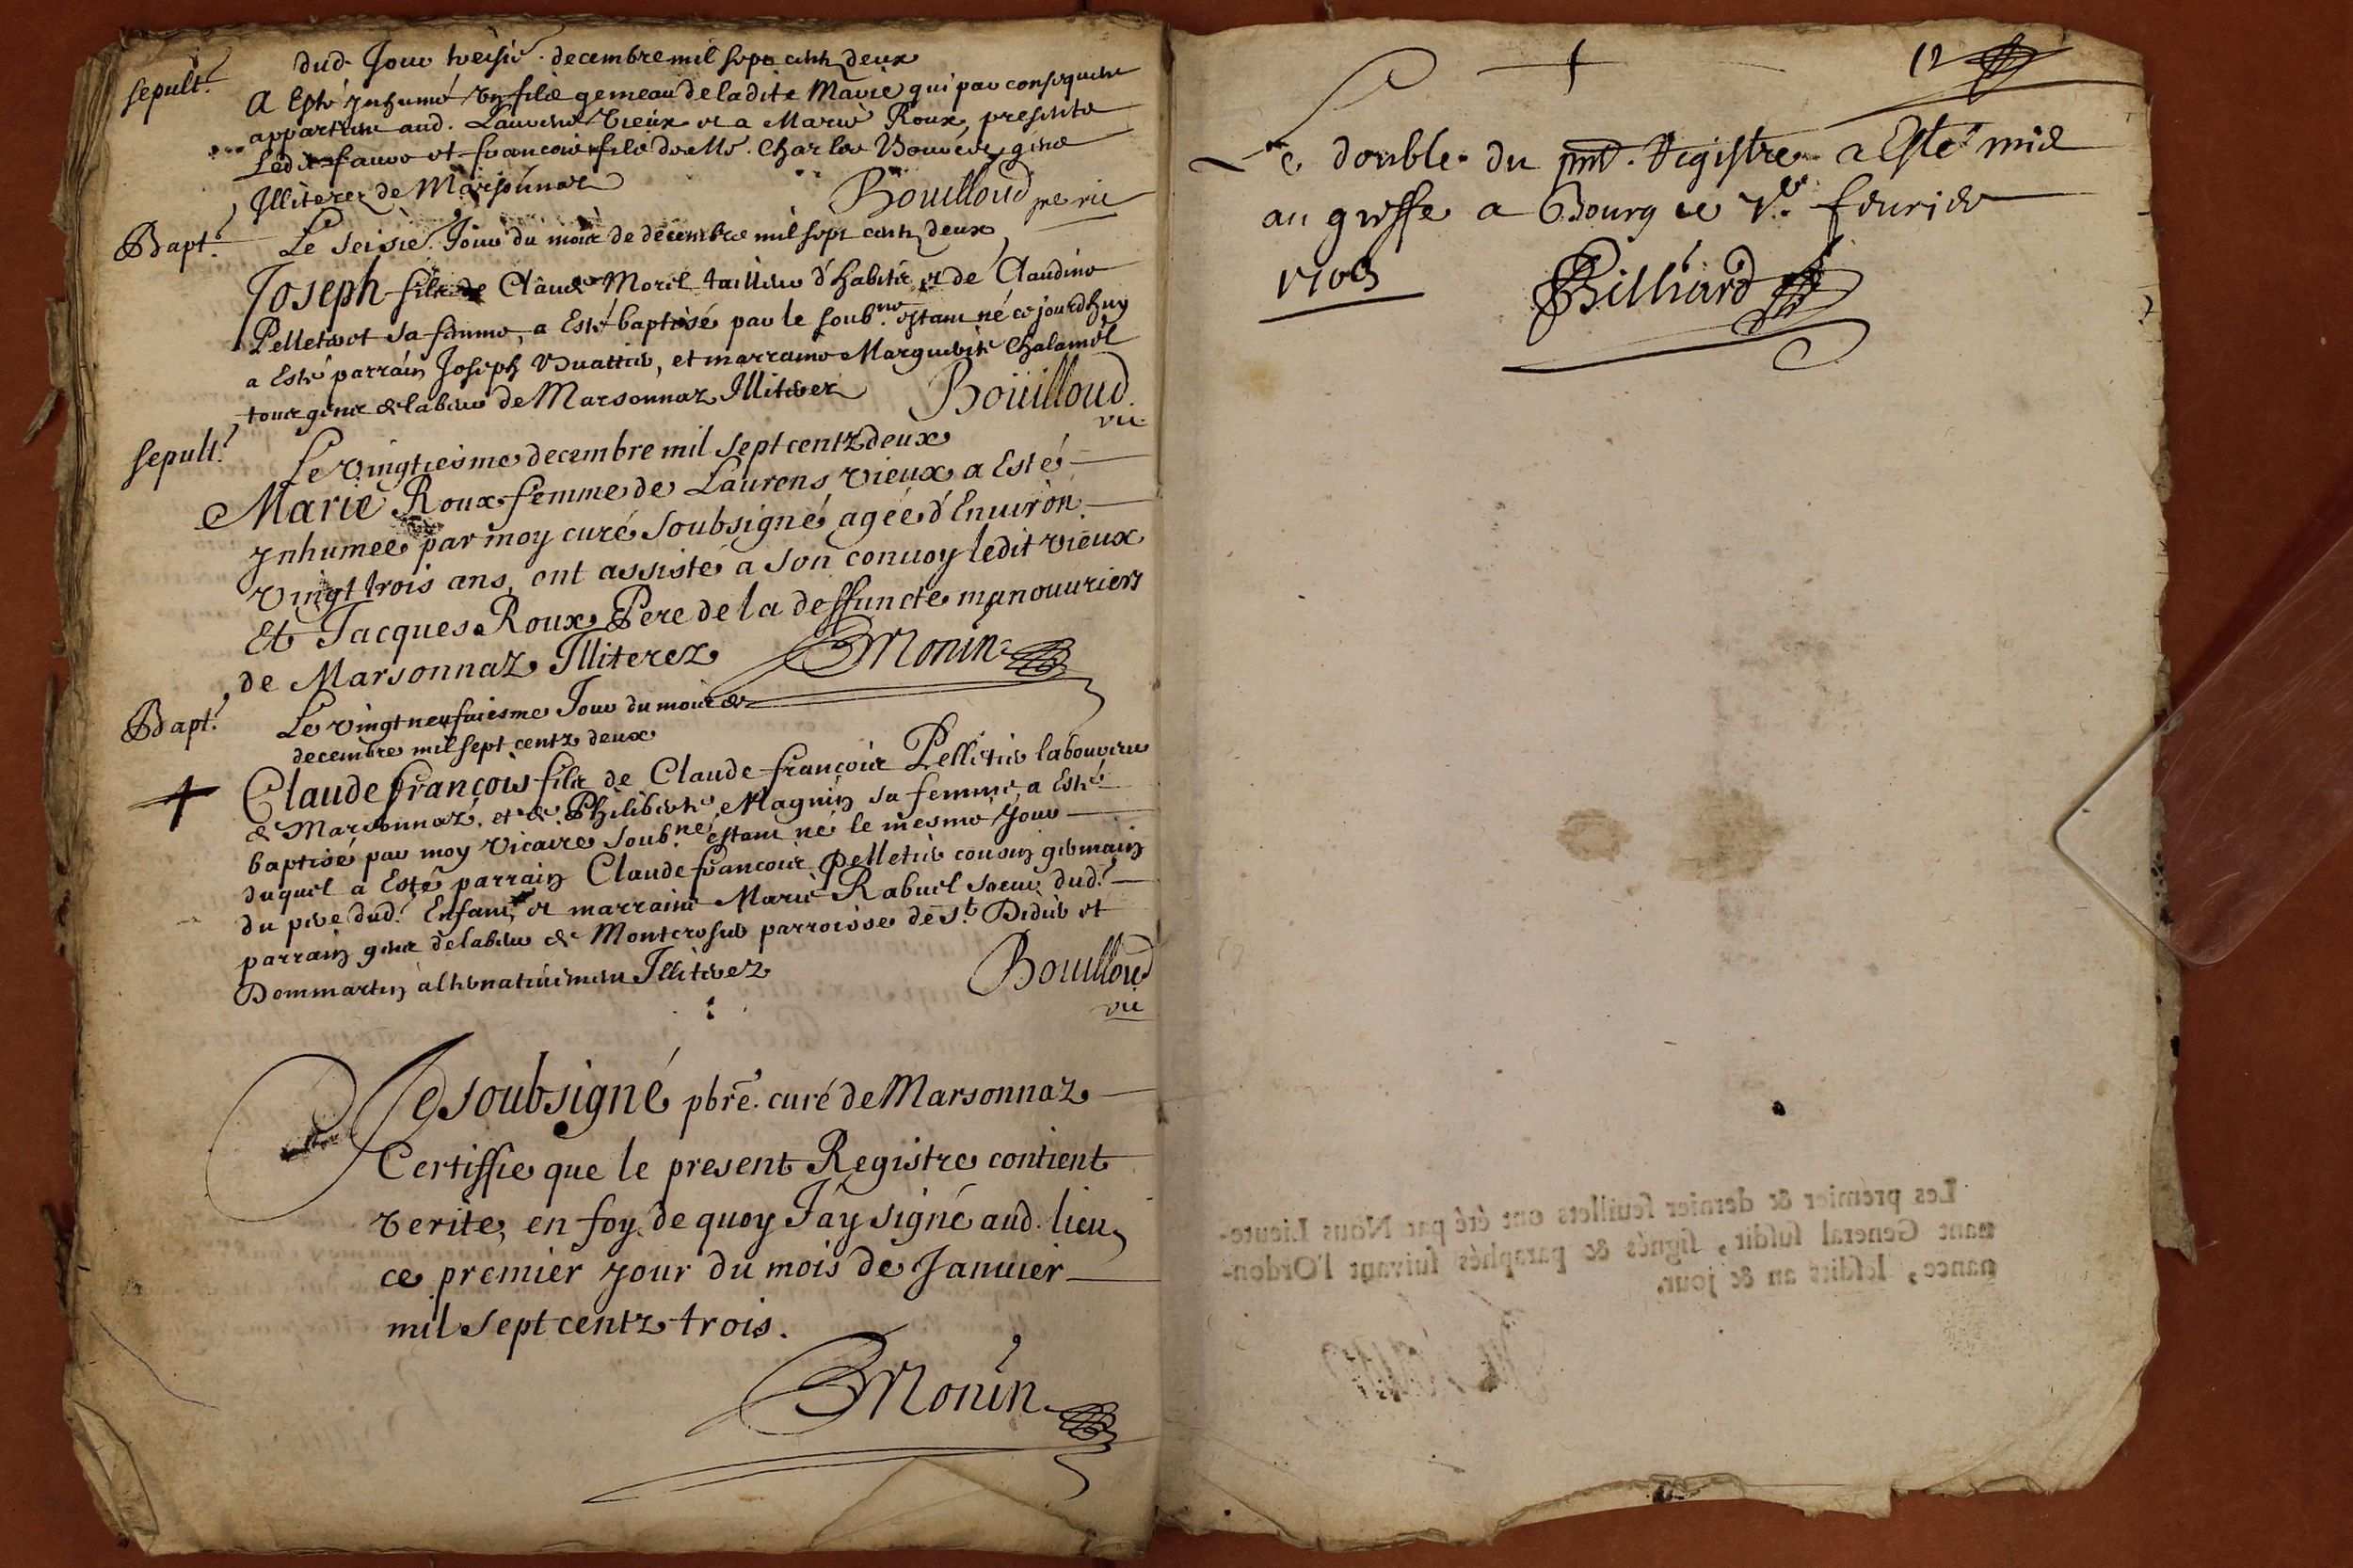 dud. Jour treisie. decembre mil sept centz deux
sepult.
A Esté ynhumé un filz gemeau de la dite Marie qui par consequent
appartient aud. Laurens Vieux et a Marie Roux, presents
et francois filz de Me. Charles gens
Illiterez de Marsonnaz
Bouilloud pre vic
Bapt.
Le seisie. Jour du mois de decembre mil sept centz deux
Joseph filz de Claude Morel tailleur d'habitz et de Claudine
Pelletrot sa femme, a Esté baptisé par le soub.né estant né ce jourdhuy
a Esté parrain Joseph Buattier, et marraine Marguerite Chalamel
tous gens de labeur de Marsonnaz Illiterez
Boüilloud
vic
sepult.
Le vingtiesme decembre mil sept centz deux
Marie Roux femme de Laurens vieux a Esté
ynhumée par moy curé soubsigné agée d'Enuiron
vingt trois ans, ont assisté a son conuoy ledit vieux
Et Jacques Roux Pere de la deffuncte manouuriers
de Marsonnaz Illiterez
Monin
Bapt.
Le vingt neufuiesme Jour du mois de
decembre mil sept centz deux
Claude françois filz de Claude françois Pelletier laboureur
de Marsonnaz, et de Philiberte Magnin sa femme, a Esté
baptisé par moy vicaire soub.né estant né le mesme Jour
duquel a Esté parrain Claude francois Pelletier cousin germain
du pere dud. Enfant, et marraine Marie Rabuel soeur dud.
parrain gens de labeur de Montcrosier parroisse de St. Didier et
Dommartin alternatiuement Illiterez
Bouilloud
vic
Je soubsigné pbre. curé de Marsonnaz
Certiffie que le present Registre contient
verite, en foy de quoy Jay signé aud. lieu
ce premier jour du mois de Januier
mil sept centz trois.
Monin
12
Le double du pnt. Registre a Esté mis
au greffe a Bourg ce feurier
1703
Billiard
Les premier & dernier feuillets ont été par Nous Lieute-
nant General susdit, signés & paraphés suivant l'Ordon-
nance, lesdits an & jour.